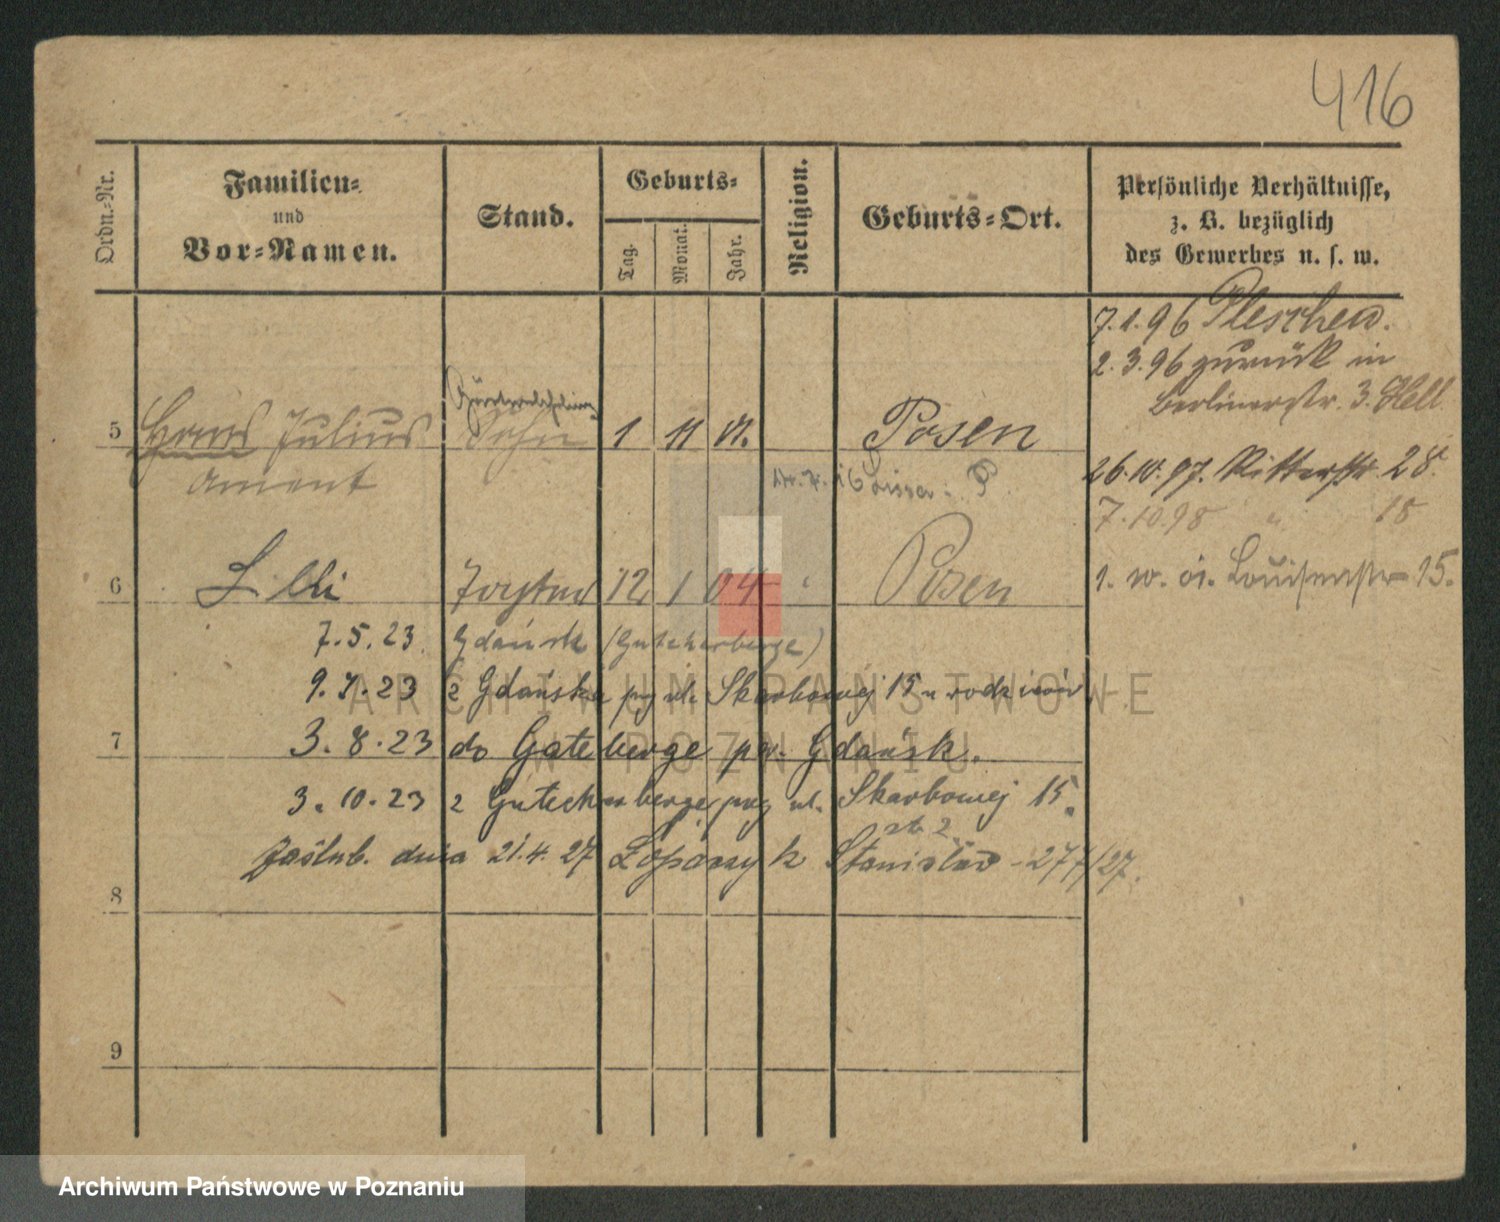 416
Ordn.-Nr.
Familien-
und
Vor-Namen.
Stand.
Geburts-
Tag.
Monat.
Jahr.
Religion.
Geburts-Ort.
Persönliche Verhältnisse,
z. B. bezüglich
des Gewerbes u. s. w.
7.1.96 Pleschen.
2.3.96 zurück in
Berlinerstr. 3. Hell
5 Hans Julius Sohn 1 11 Posen
Ament
26.10.97. Ritterstr. 28.
7.10.98 " 18
6 Lilli Tochter 12 1 04 " Posen
1. 10. 01. Louisenstr 15.
7.5.23 Gdańsk (Guteherberge)
9.7.23 z Gdańska prz ul. Skarbowej 15 u rodziców
7 3.8.23 do Gateberge pw. Gdańsk.
3.10.23 z Gutecherberge prz ul. Skarbowej 15.
zaślub. dnia 21.4.27 Stanisław - 277/27.
8
9
ARCHIWUM PAŃSTWOWE
W POZNANIU
Archiwum Państwowe w Poznaniu